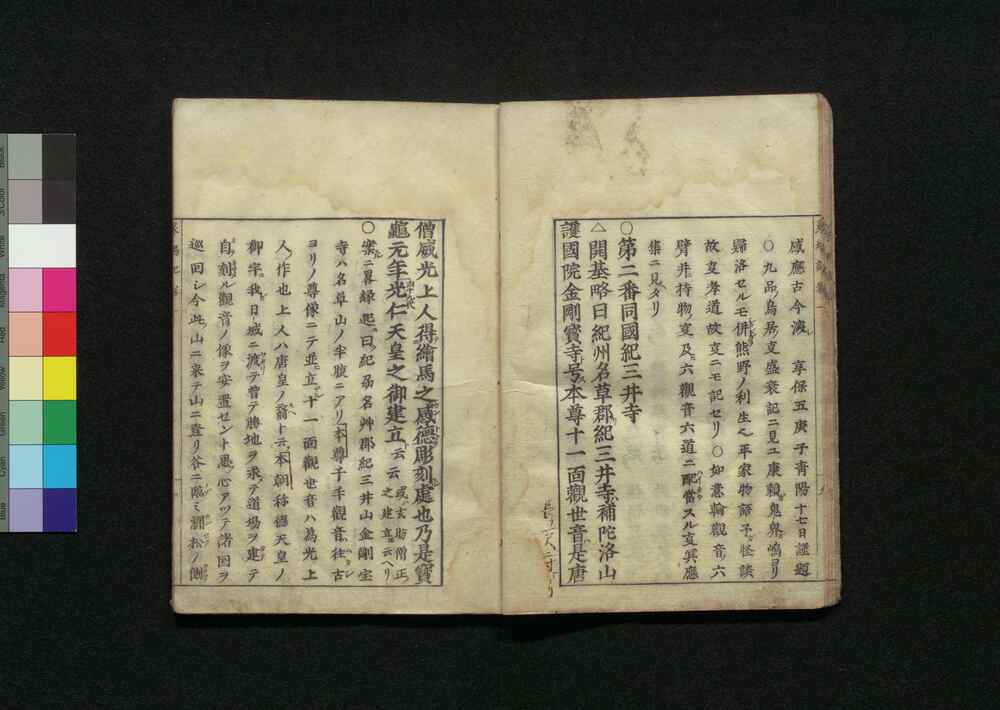 感應古今渡 享保五庚子青陽十七日謹題
〇九品鳥居ノ変盛衰記ニ見ユ康賴鬼界嶋ヨリ
歸洛セルモ併熊野ノ利生ヘ平家物語予怪談
故変孝道故変ニモ記セリ〇如意輪觀音六
臂并持物変及六觀音六道ニ配當スル変冥應
集ニ見タリ
〇第二番同國紀三井寺
△開基略曰紀州名草郡紀三井寺補陀洛山
護國院金剛寶寺号本尊十一面觀世音是唐
僧威光上人得繪馬之感德彫刻處也乃是寶
龜元年光仁天皇之御建立云云或玄昉僧正之建立云ヘリ
〇案ニ畧緣起曰紀刕名艸郡紀三井山金剛宝
寺ハ名草山ノ半腹ニアリ本尊千手觀音往古
ヨリノ尊像ニテ並立十一面觀世音ハ為光上
人作也上人ハ唐皇ノ裔ト云本朝称德天皇ノ
御宇我日城ニ渡テ曽テ勝地ヲ求テ道場ヲ建テ
自刻ル觀音ノ像ヲ安置セント思心アツテ諸國ヲ
巡回シ今此山ニ來テ山ニ登リ谷ニ臨ミ洞松ノ側